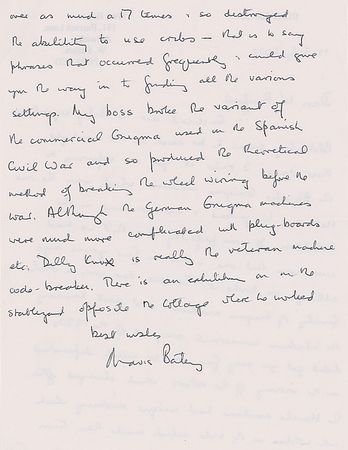 over as much a 17 times & so destroyed
the ability to use cribs – that is to say
phrases that occurred frequently & could give
you the way in to finding all the various
settings. My boss broke the variant of
the commercial Enigma used in the Spanish
Civil War and so produced the theoretical
method of breaking the wheel wiring before the
war. Although the German Enigma machines
were much more complicated with plug-boards
etc. Dilly Knox is really the veteran machine
code-breaker. There is an exhibition on in the
stableyard opposite the Cottage where he worked
best wishes
Mavis Batey